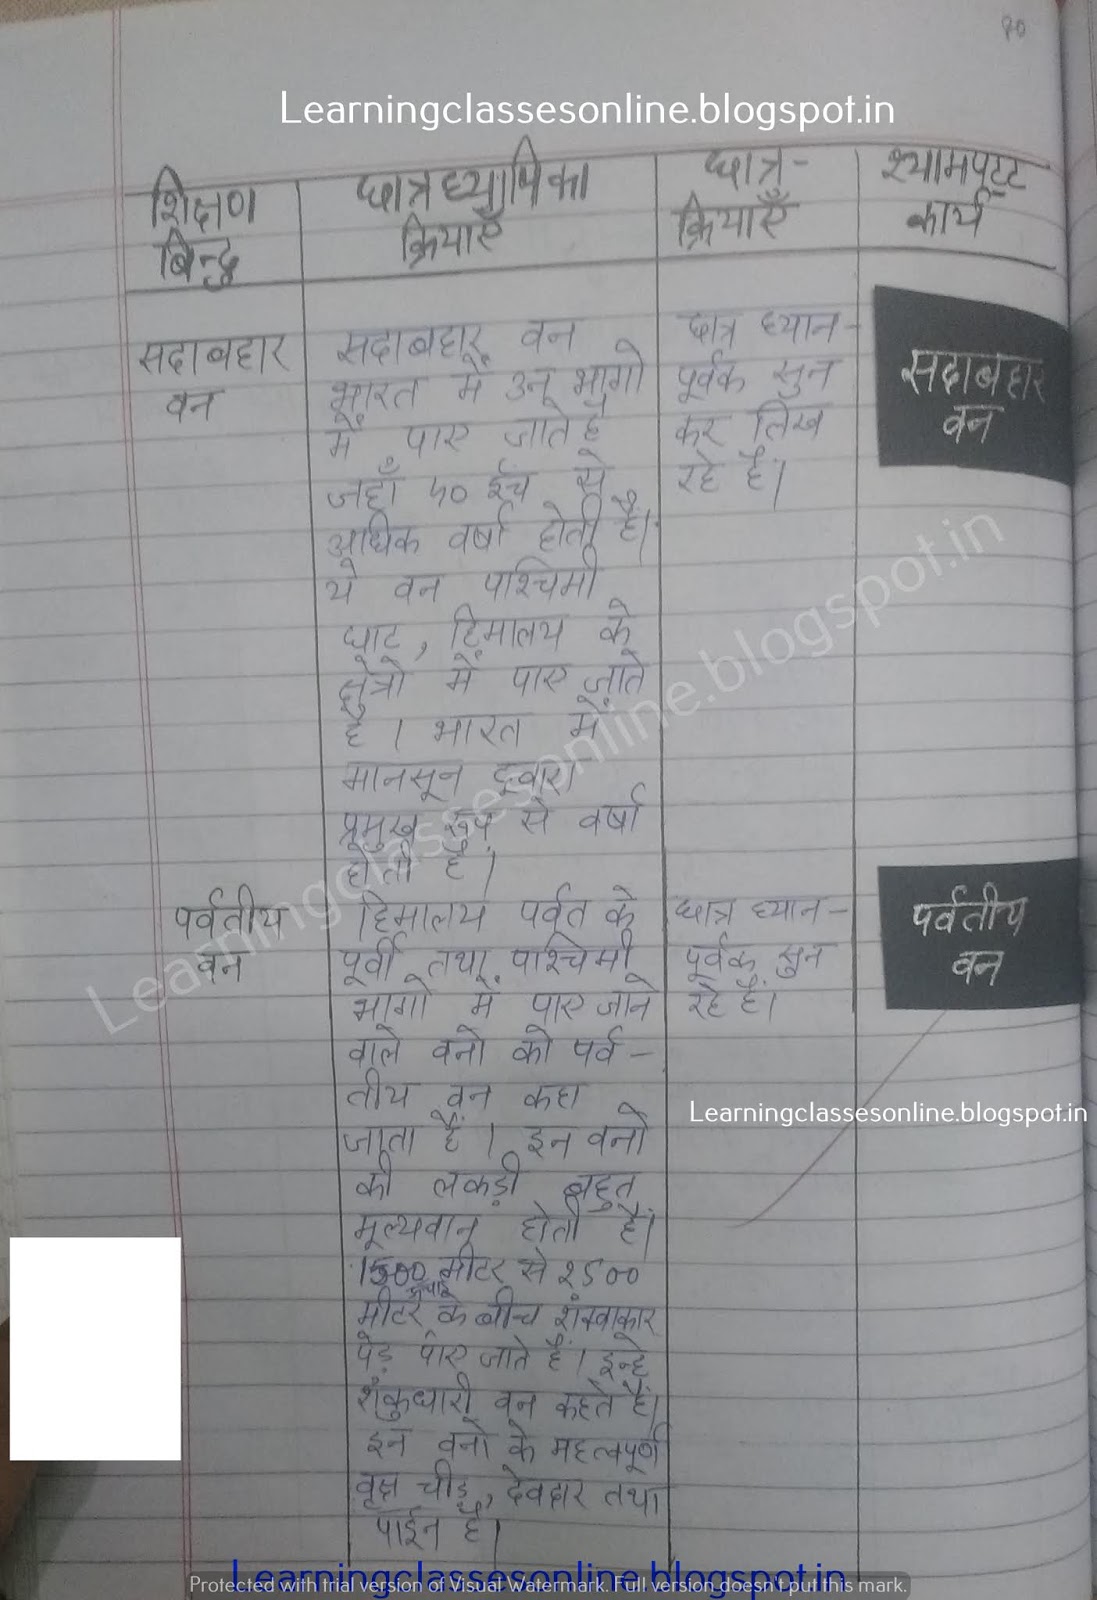 70
Learningclassesonline.blogspot.in
शिक्षण
बिन्दु
छात्रध्यापिका
क्रियाएँ
छात्र-
क्रियाएँ
श्यामपट्ट
कार्य
सदाबहार
वन
सदाबहार वन
भारत में उन भागो
में पाए जाते है
जहाँ 40 ईंच से
अधिक वर्षा होती है।
ये वन पश्चिमी
घाट, हिमालय के
क्षेत्रो में पाए जाते
है। भारत में
मानसून द्वारा
प्रमुख रूप से वर्षा
होती है।
छात्र ध्यान-
पूर्वक सुन
कर लिख
रहे हैं।
सदाबहार
वन
पर्वतीय
वन
हिमालय पर्वत के
पूर्वी तथा पश्चिमी
भागो में पाए जाने
वाले वनो को पर्व-
तीय वन कहा
जाता है। इन वनो
की लकड़ी बहुत
मूल्यवान होती है।
1500 मीटर से 2500
मीटर के बीच शंक्वाकार
पेड़ पाए जाते हैं। इन्हे
शंकुधारी वन कहते हैं।
इन वनो के महत्वपूर्ण
वृक्ष चीड़, देवदार तथा
पाईन है।
छात्र ध्यान-
पूर्वक सुन
रहे हैं।
पर्वतीय
वन
Learningclassesonline.blogspot.in
Learningclassesonline.blogspot.in
Learningclassesonline.blogspot.in
Protected with trial version of Visual Watermark. Full version doesn't put this mark.